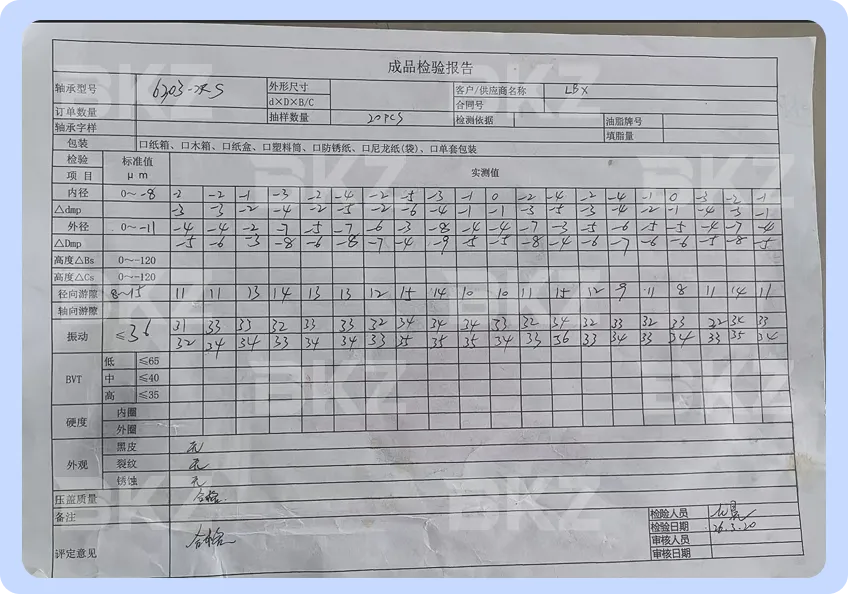 成品检验报告
轴承型号 6203-2RS 外形尺寸 d×D×B/C 客户/供应商名称 LBX
合同号
订单数量 抽样数量 20PCS 检测依据 油脂牌号
轴承字样 填脂量
包装 口纸箱、口木箱、口纸盒、口塑料筒、口防锈纸、口尼龙纸(袋)、口单套包装
检验项目 标准值 μm 实测值
内径 0～-8 -2 -2 -1 -3 -2 -4 -2 -5 -3 -1 0 -2 -4 -2 -4 -1 0 -3 -2 -1
△dmp -3 -3 -2 -4 -2 -5 -2 -6 -4 -1 -1 -3 -5 -3 -4 -2 -1 -4 -3 -1
外径 0～-11 -4 -4 -2 -7 -5 -7 -6 -3 -8 -4 -4 -7 -3 -5 -6 -5 -5 -4 -7 -4
△Dmp -5 -6 -3 -8 -6 -8 -7 -4 -9 -5 -5 -8 -4 -6 -7 -6 -6 -5 -8 -5
高度△Bs 0～-120
高度△Cs 0～-120
径向游隙 8～15 11 11 13 14 13 13 12 15 14 10 10 11 15 12 9 11 8 11 14 11
轴向游隙
振动 ≤36 31 33 33 32 33 33 32 34 34 34 33 32 34 32 33 32 33 32 34 33
32 34 34 33 34 34 33 35 35 35 34 33 36 33 34 33 34 33 35 34
BVT 低 ≤65
中 ≤40
高 ≤35
硬度 内圈
外圈
外观 黑皮 无
裂纹 无
锈蚀 无
压盖质量 合格
备注
评定意见 合格
检验人员
检验日期 26.3.20
审核人员
审核日期
BKZ